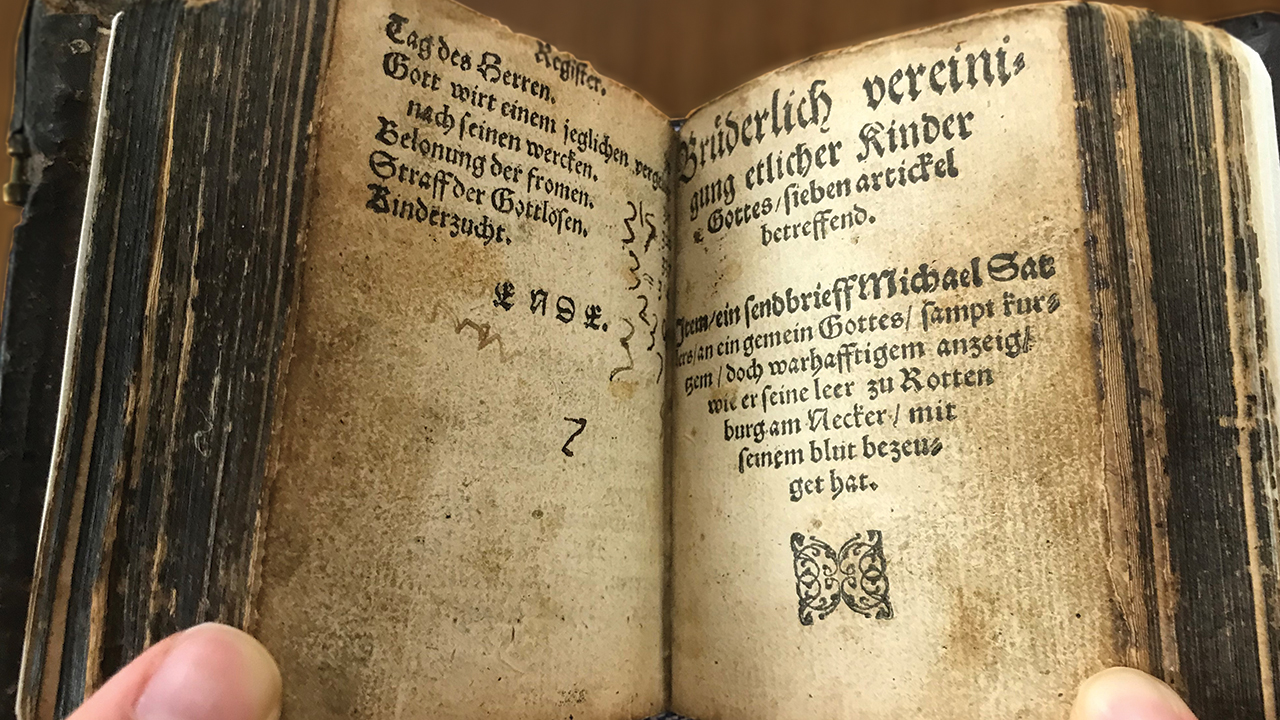 Register.
Tag des Herren.
Gott wirt einem jeglichen
nach seinen wercken.
Belonung der fromen.
Straff der Gottlosen.
Kinderzucht.
ENDE.
Brüderlich vereini⸗
gung etlicher Kinder
Gottes/sieben artickel
betreffend.
Item/ein sendbrieff Michael Sat
lers/an ein gemein Gottes/ sampt kur⸗
tzem/doch warhafftigem anzeig/
wie er seine leer zu Rotten
burg am Necker/ mit
seinem blut bezeu⸗
get hat.